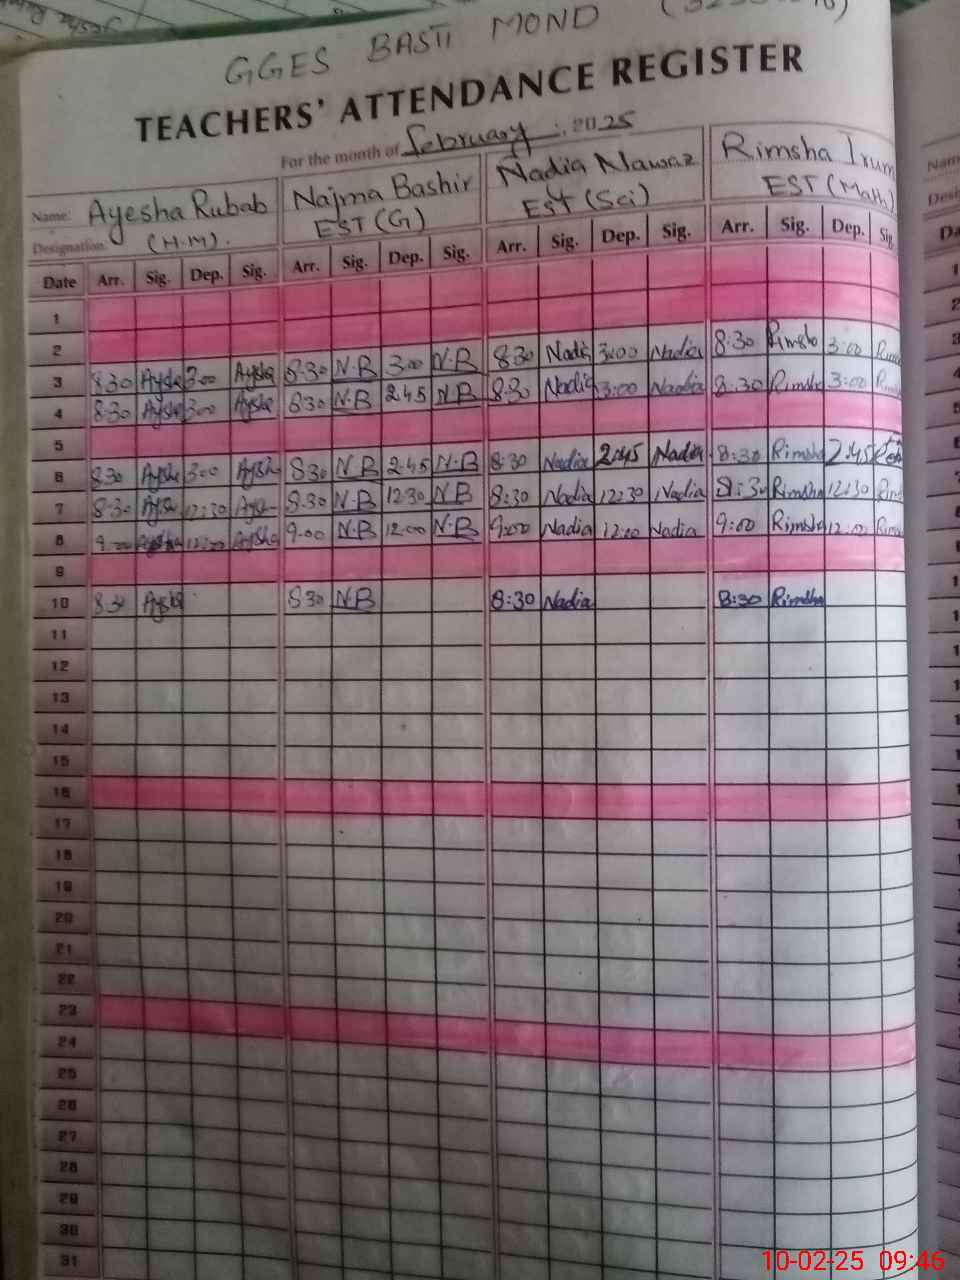 GGES BASTI MOND
TEACHERS' ATTENDANCE REGISTER
For the month of February, 2025
Name: Ayesha Rubab Najma Bashir Nadia Nawaz Rimsha Irum
Designation: (H.M). EST (G) EST (Sci) EST (Math)
Date Arr. Sig. Dep. Sig. Arr. Sig. Dep. Sig. Arr. Sig. Dep. Sig. Arr. Sig. Dep. Sig.
1
2
3 8:30 Aysha 3:00 Aysha 8:30 N.B 3:00 N.B 8:30 Nadia 3:00 Nadia 8:30 Rimsha 3:00
4 8:30 Aysha 3:00 Aysha 8:30 N.B 2:45 N.B 8:30 Nadia 3:00 Nadia 8:30 Rimsha 3:00
5
6 8:30 Aysha 3:00 Aysha 8:30 N.B 2:45 N.B 8:30 Nadia 2:45 Nadia 8:30 Rimsha 2:45
7 8:30 Aysha 12:30 Aysha 8:30 N.B 12:30 N.B 8:30 Nadia 12:30 Nadia 8:30 Rimsha 12:30
8 9:00 Aysha Aysha 9:00 N.B 12:00 N.B 9:00 Nadia 12:00 Nadia 9:00 Rimsha 12:00
9
10 8:30 Aysha 8:30 N.B 8:30 Nadia 8:30 Rimsha
11
12
13
14
15
16
17
18
19
20
21
22
23
24
25
26
27
28
29
30
31
10-02-25 09:46